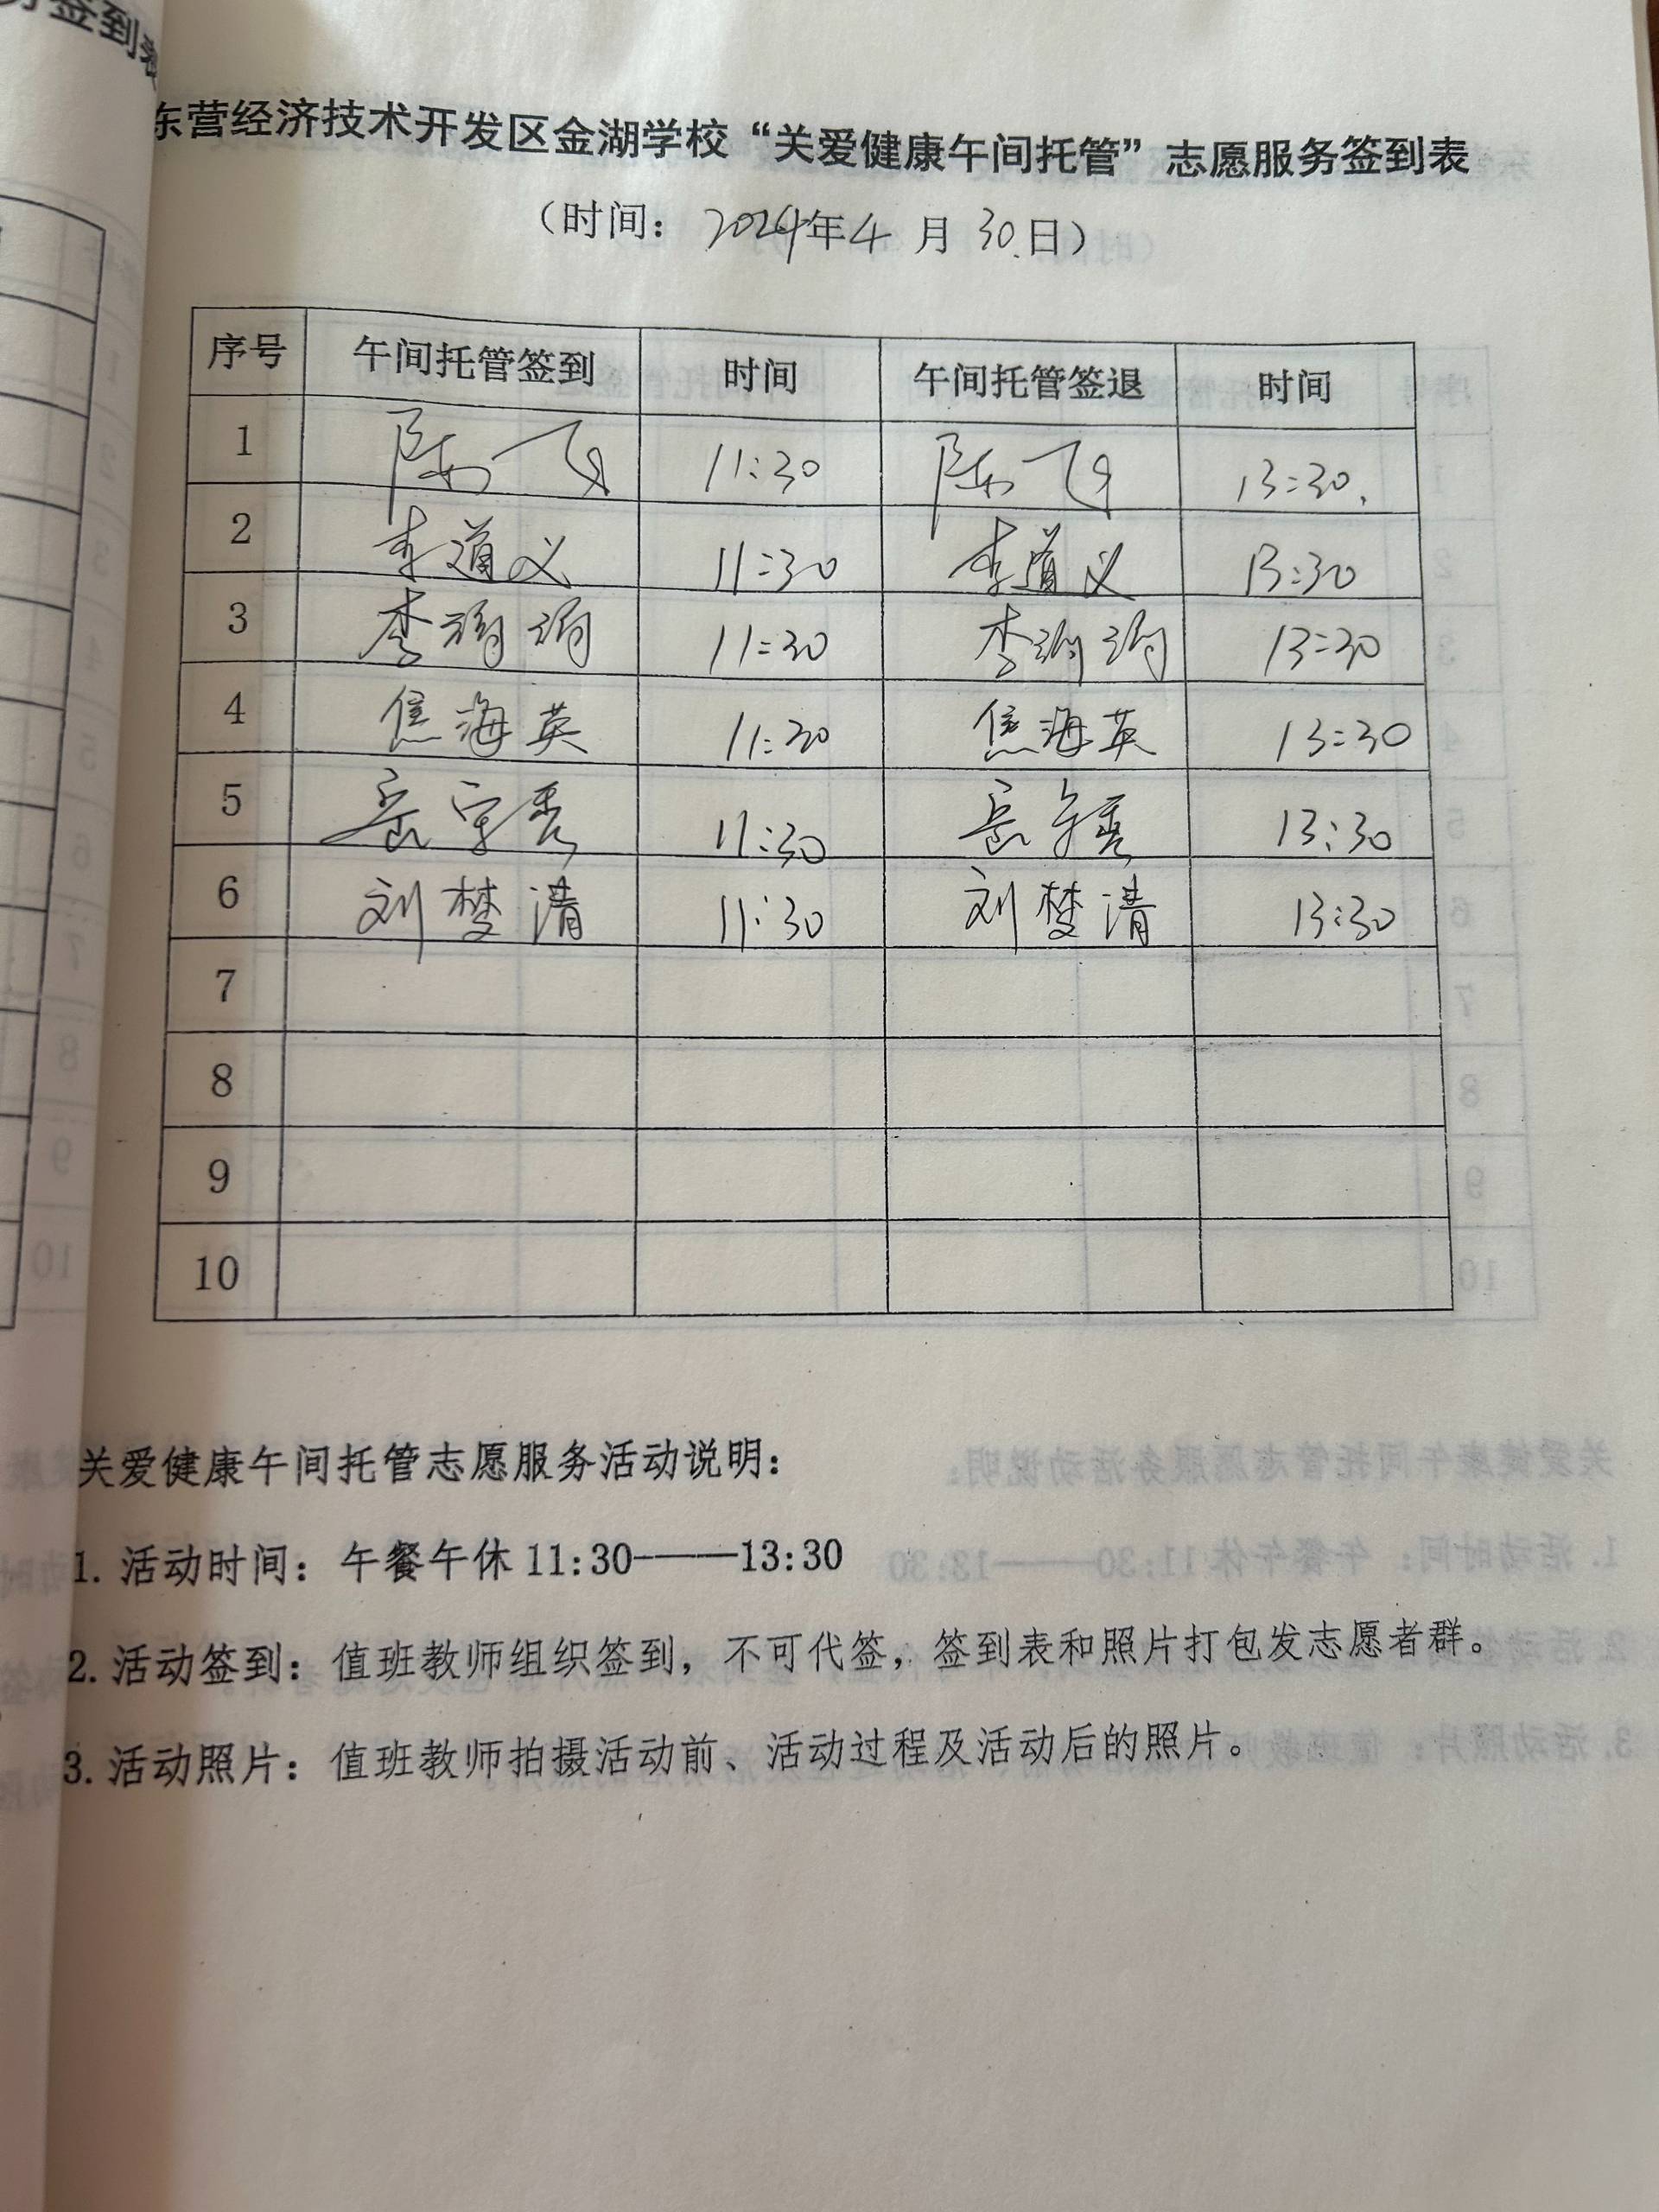 务签到表
东营经济技术开发区金湖学校“关爱健康午间托管”志愿服务签到表
（时间：2024年4月30日）
序号 午间托管签到 时间 午间托管签退 时间
1 陈飞 11:30 陈飞 13:30.
2 李道义 11:30 李道义 13:30
3 李 11:30 李 13:30
4 焦海英 11:30 焦海英 13:30
5 岳守秀 11:30 岳守秀 13:30
6 刘梦清 11:30 刘梦清 13:30
7
8
9
10
关爱健康午间托管志愿服务活动说明：
1. 活动时间：午餐午休 11:30———13:30
2. 活动签到：值班教师组织签到，不可代签，签到表和照片打包发志愿者群。
3. 活动照片：值班教师拍摄活动前、活动过程及活动后的照片。